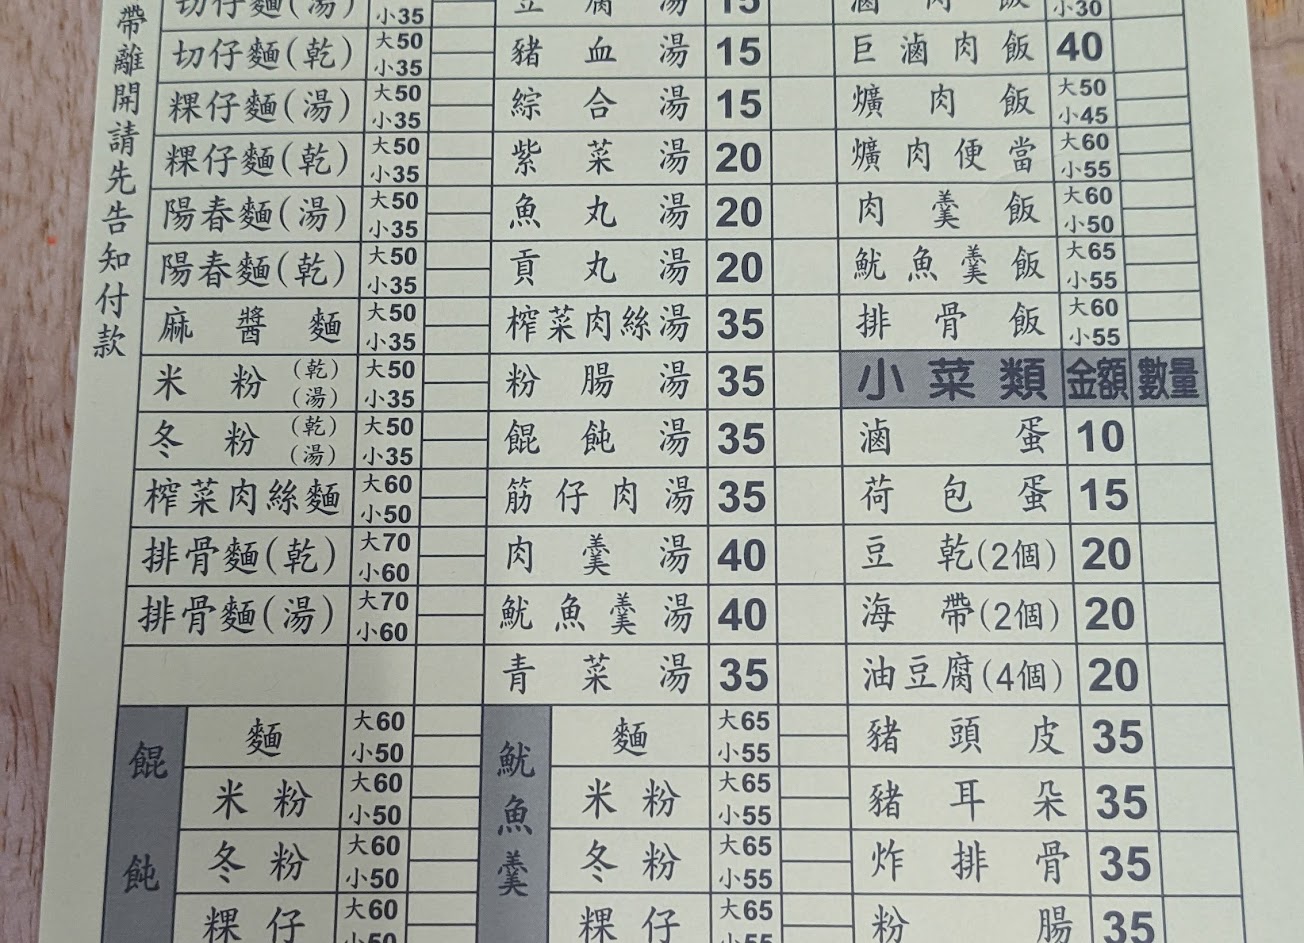 帶離開請先告知付款
切仔麵(湯) 小35 豆腐湯 15 滷肉飯 小30
切仔麵(乾) 大50 小35 豬血湯 15 巨滷肉飯 40
粿仔麵(湯) 大50 小35 綜合湯 15 爌肉飯 大50 小45
粿仔麵(乾) 大50 小35 紫菜湯 20 爌肉便當 大60 小55
陽春麵(湯) 大50 小35 魚丸湯 20 肉羹飯 大60 小50
陽春麵(乾) 大50 小35 貢丸湯 20 魷魚羹飯 大65 小55
麻醬麵 大50 小35 榨菜肉絲湯 35 排骨飯 大60 小55
米粉(乾)(湯) 大50 小35 粉腸湯 35 小菜類 金額 數量
冬粉(乾)(湯) 大50 小35 餛飩湯 35 滷蛋 10
榨菜肉絲麵 大60 小50 筋仔肉湯 35 荷包蛋 15
排骨麵(乾) 大70 小60 肉羹湯 40 豆乾(2個) 20
排骨麵(湯) 大70 小60 魷魚羹湯 40 海帶(2個) 20
青菜湯 35 油豆腐(4個) 20
餛飩 麵 大60 小50 魷魚羹 麵 大65 小55 豬頭皮 35
米粉 大60 小50 米粉 大65 小55 豬耳朵 35
冬粉 大60 小50 冬粉 大65 小55 炸排骨 35
粿仔 大60 小50 粿仔 大65 小55 粉腸 35